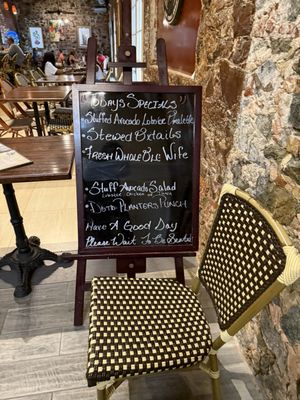 Todays Specials
Stuffed Avocado Lobster
Stewed Oxtails
Fresh Whole Ole Wife
Stuff Avocado Salad
Lobster Chicken or
Planters Punch
Have A Good Day
Please Wait To Be Seated